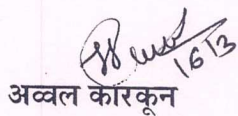 16/3
अव्वल कारकून